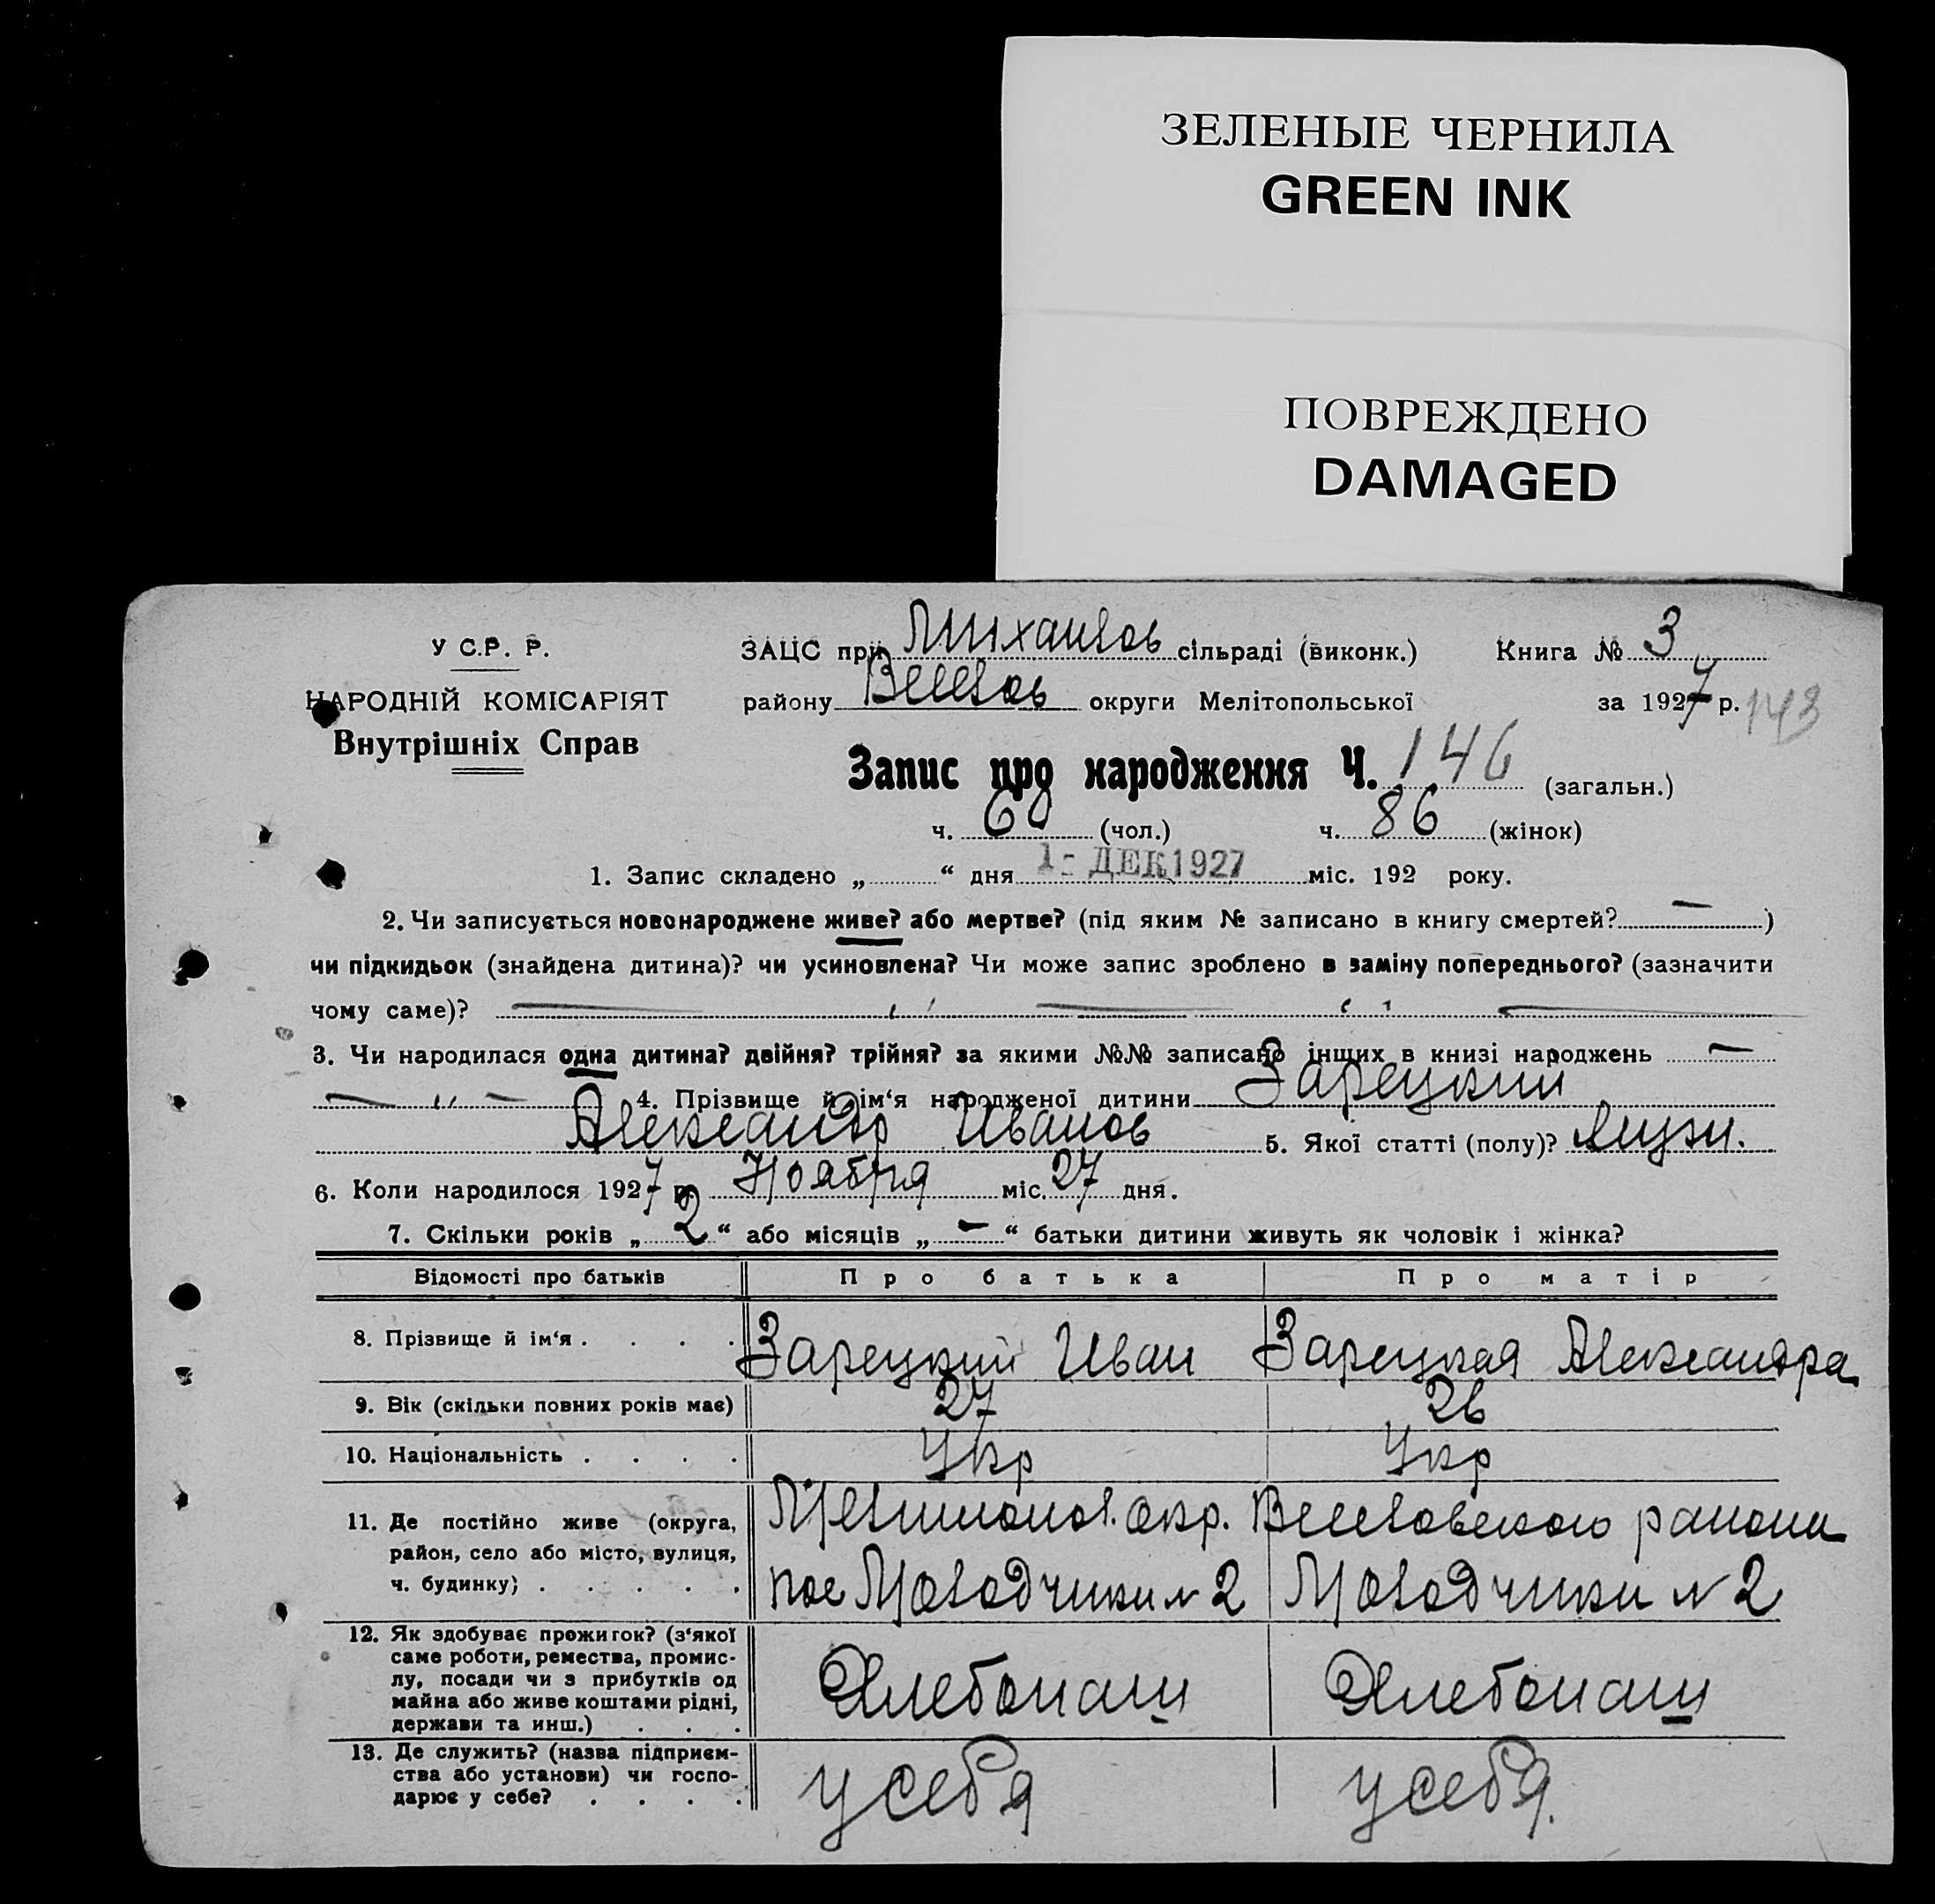 ЗЕЛЕНЫЕ ЧЕРНИЛА
GREEN INK
ПОВРЕЖДЕНО
DAMAGED
У С.Р. Р.
НАРОДНІЙ КОМІСАРІЯТ
Внутрішніх Справ
ЗАЦС при Михайлов сільраді (виконк.) Книга № 3
району Веселов округи Мелітопольської за 1927 р. 143
Запис про народження Ч. 146 (загальн.)
ч. 60 (чол.) ч. 86 (жінок)
1. Запис складено „ “ дня 1 - ДЕК 1927 міс. 192 року.
2. Чи записується новонароджене живе? або мертве? (під яким № записано в книгу смертей? — )
чи підкидьок (знайдена дитина)? чи усиновлена? Чи може запис зроблено в заміну попереднього? (зазначити
чому саме)? — „ — „ —
3. Чи народилася одна дитина? двійня? трійня? за якими №№ записано інших в книзі народжень —
— „ — 4. Прізвище й ім‘я народженої дитини Зарецкий
Александр Иванов 5. Якої статті (полу)? Мужч.
6. Коли народилося 1927 р. Ноября міс. 27 дня.
7. Скільки років „ 2 “ або місяців „ — “ батьки дитини живуть як чоловік і жінка?
Відомості про батьків Про батька Про матір
8. Прізвище й ім‘я . . . . Зарецкий Иван Зарецкая Александра
9. Вік (скільки повних років має) 27 26
10. Національність . . . . Укр Укр
11. Де постійно живе (округа, Мелитопол. окр. Веселовского района
район, село або місто, вулиця,
ч. будинку) . . . . . пос Молодчики № 2 Молодчики № 2
12. Як здобуває прожиток? (з‘якої
саме роботи, ремества, промис-
лу, посади чи з прибутків од Хлебопаш Хлебопаш
майна або живе коштами рідні,
держави та инш.) . . .
13. Де служить? (назва підприєм-
ства або установи) чи госпо- у себя у себя.
дарює у себе? . . . .